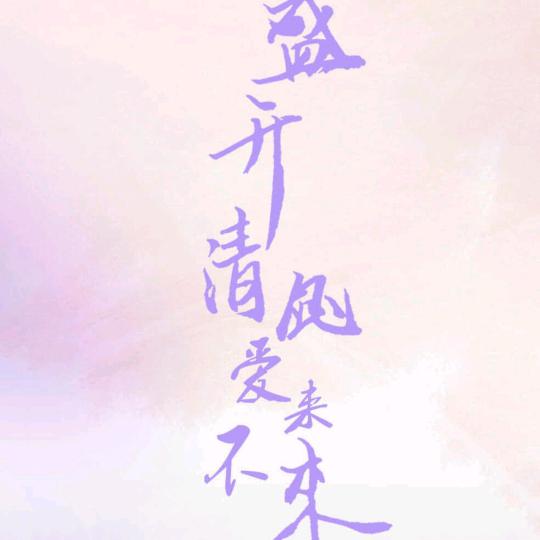 盛开
清风
爱来
不来